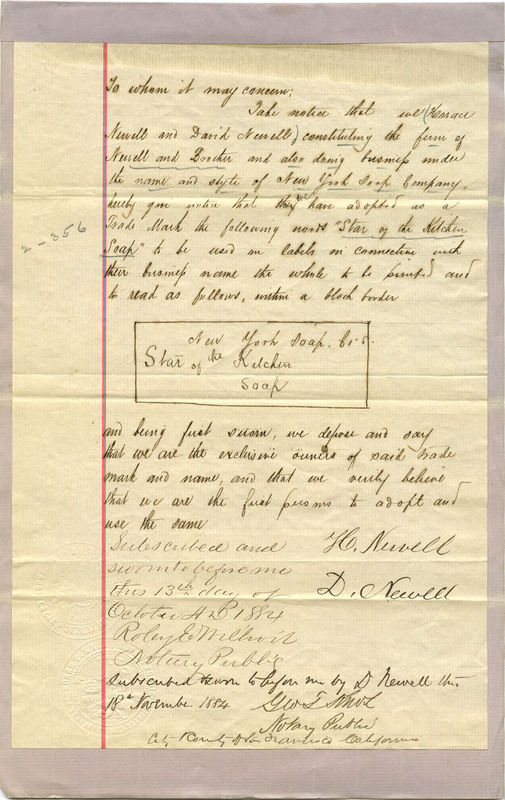 To whom it may concern;
Take notice that we (Horace
Newell and David Newell) constituting the firm of
Newell and Brother and also doing business under
the name and style of New York Soap Company,
hereby give notice that they we have adopted as a
Trade Mark the following words "Star of the Kitchen
Soap" to be used on labels in connection with
their business name the whole to be printed and
to read as follows, within a black border
2-356
New York Soap. Co's.
Star of the Kitchen
Soap
and being first sworn, we depose and say
that we are the exclusive owners of said trade
mark and name, and that we verily believe
that we are the first persons to adopt and
use the same
Subscribed and
sworn to before me
this 13th day of
October A.D. 1884
H. Newell
D. Newell
Notary Public
Subscribed & sworn to before me by D Newell this
18th November 1884
Geo T Knox
Notary Public
City & County of San Francisco California